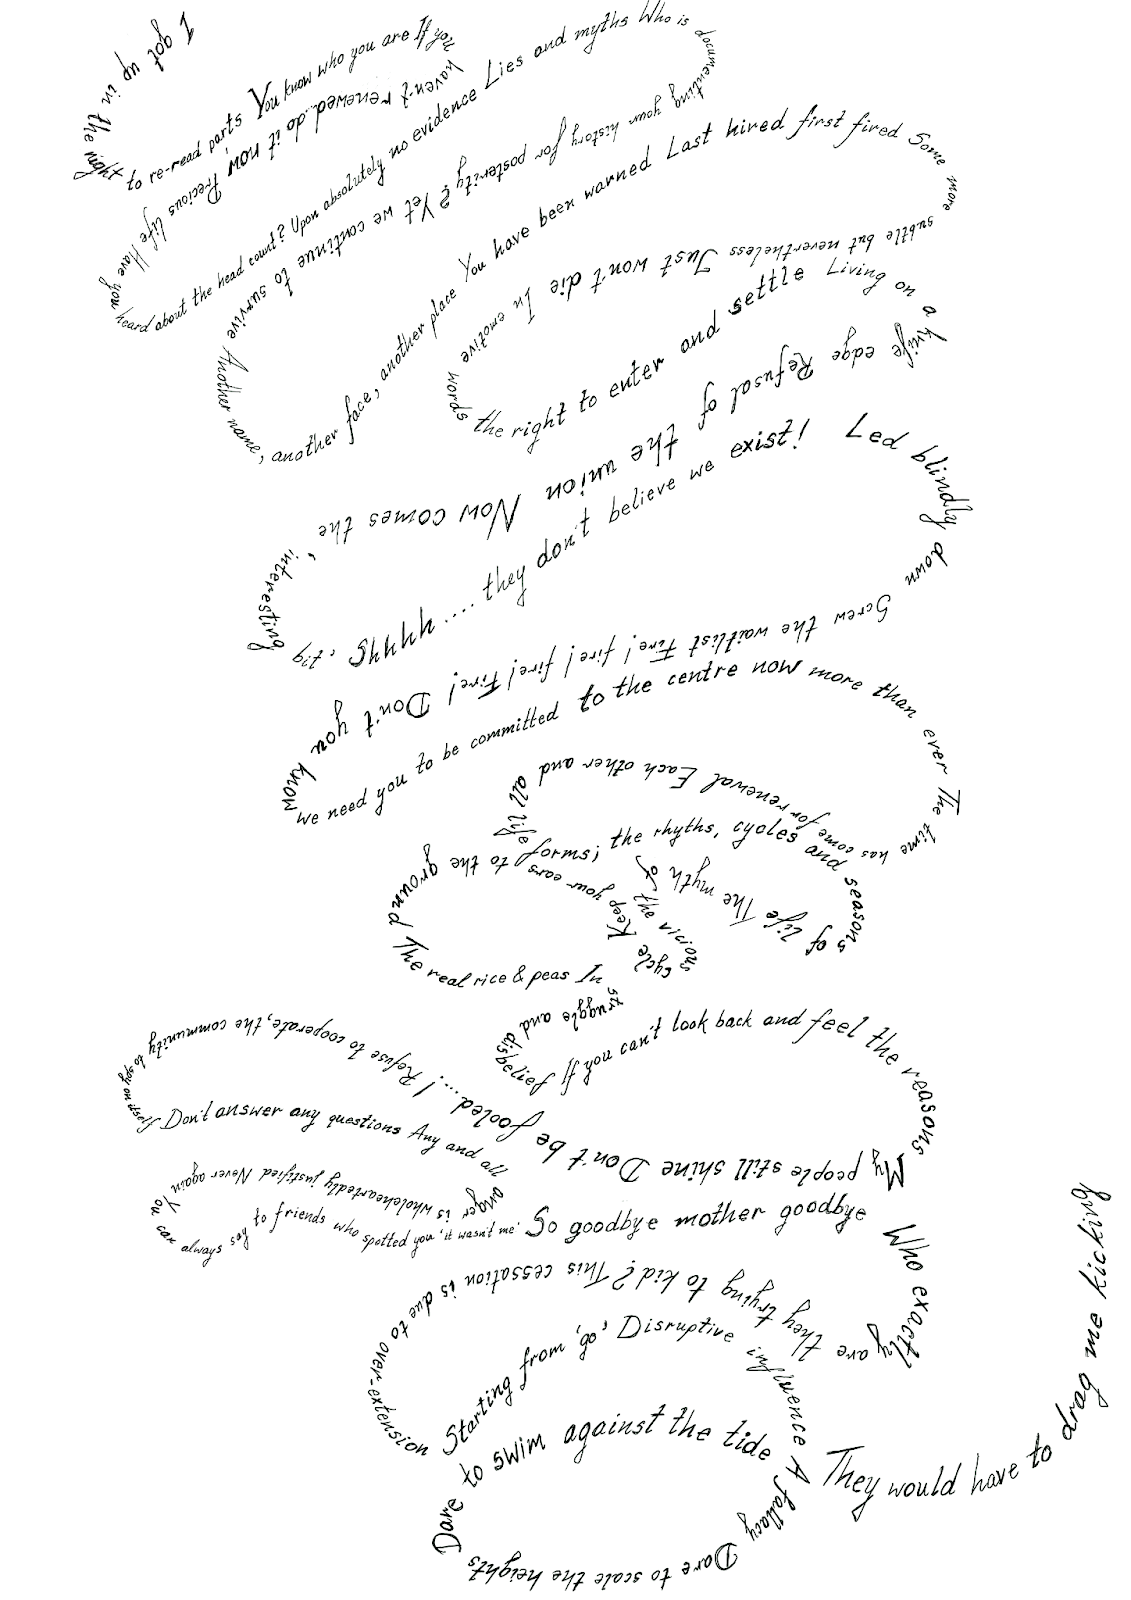 I got up in the night
to re-read parts You know who you are If you
haven't renewed..do it now, Precious life Have you
heard about the head count? Upon absolutely no evidence Lies and myths Who is
documenting your history for posterity? Yet we continue to survive
Another name, another face, another place You have been warned Last hired first fired Some more
subtle but nevertheless Just won't die In emotive words
the right to enter and settle Living on a
knife edge Refusal of the union Now comes the 'interesting'
bit, Shhhhh .... they don't believe we exist!
Led blindly down
Screw the waitlist Fire! fire! fire! Fire! Don't you know
we need you to be committed to the centre now more than ever The time
has come for renewal Each other and all life
forms; the rhyths, cycles and seasons
of life The myth of the vicious cycle
Keep your ears to the ground
The real rice & peas In
struggle and disbelief
If you can't look back and feel the reasons
My people still shine Don't be fooled....! Refuse to cooperate, the community to spy on itself
Don't answer any questions Any and all
anger is wholeheartedly justified Never again
You can always say to friends who spotted you, 'it wasn't me' So goodbye mother goodbye
Who exactly
are they trying to kid? This cessation is due to over-extension
Starting from 'go', Disruptive influence A fallacy
Dare to scale the heights
Dare to swim against the tide
They would have to drag me kicking